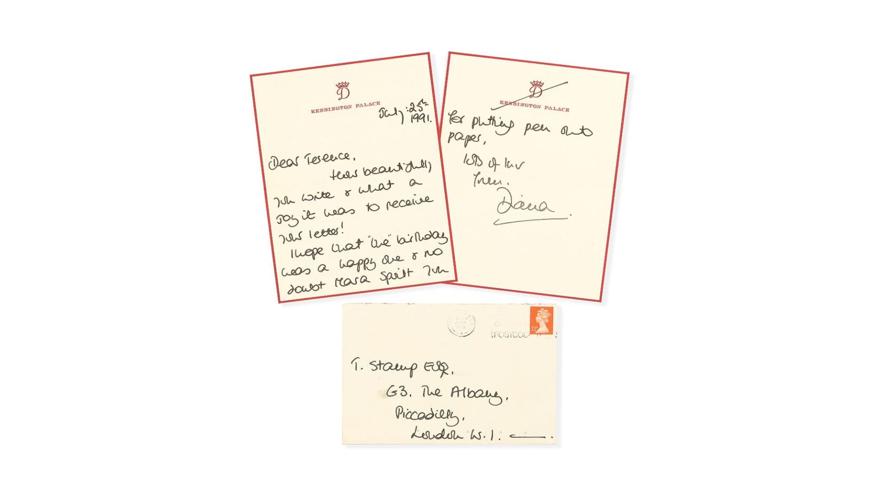 D
KENSINGTON PALACE
July : 25th
1991.
Dear Terence,
How beautifully
you write & what a
joy it was to receive
your letter!
I hope that 'the' birthday
was a happy one & no
doubt Mara spoilt you
D
KENSINGTON PALACE
for putting pen onto
paper,
from
Diana
T. Stamp ESQ,
G3. The Albany,
Piccadilly,
London W.1.